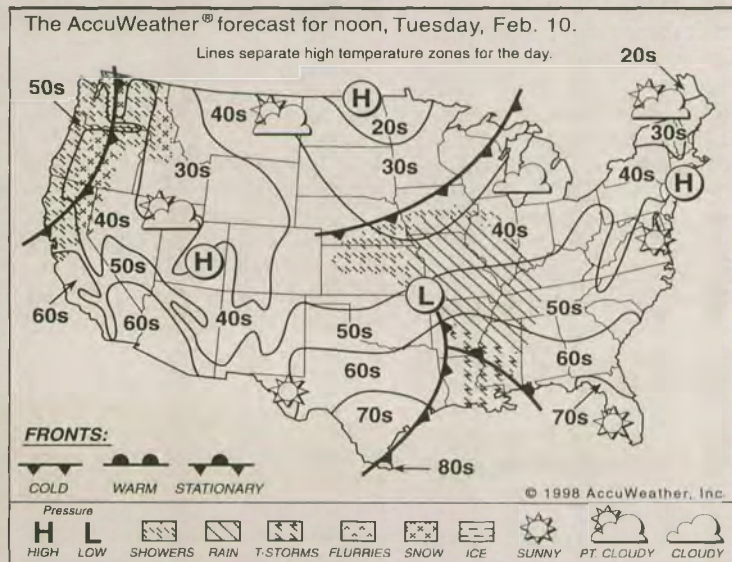 The AccuWeather® forecast for noon, Tuesday, Feb. 10.
Lines separate high temperature zones for the day.
20s
50s
H
40s
20s
30s
30s
30s
40s
H
40s
40s
H
50s
L
60s
60s
40s
50s
50s
60s
60s
70s
70s
80s
FRONTS:
COLD WARM STATIONARY
© 1998 AccuWeather, Inc
Pressure
H L
HIGH LOW SHOWERS RAIN T-STORMS FLURRIES SNOW ICE SUNNY PT. CLOUDY CLOUDY